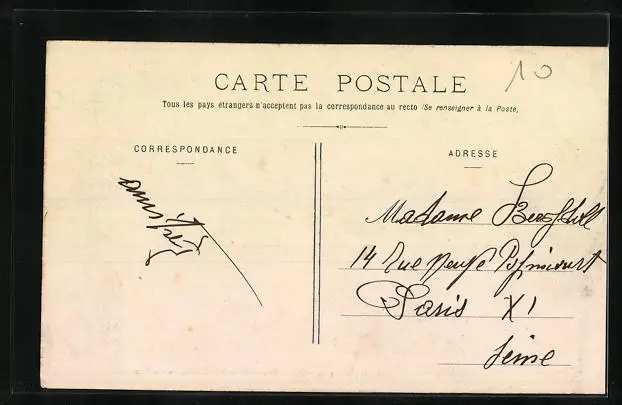 10
CARTE POSTALE
Tous les pays étrangers n'acceptent pas la correspondance au recto (Se renseigner à la Poste,
CORRESPONDANCE
ADRESSE
Madame
14 Rue Popincourt
Paris XI
Seine